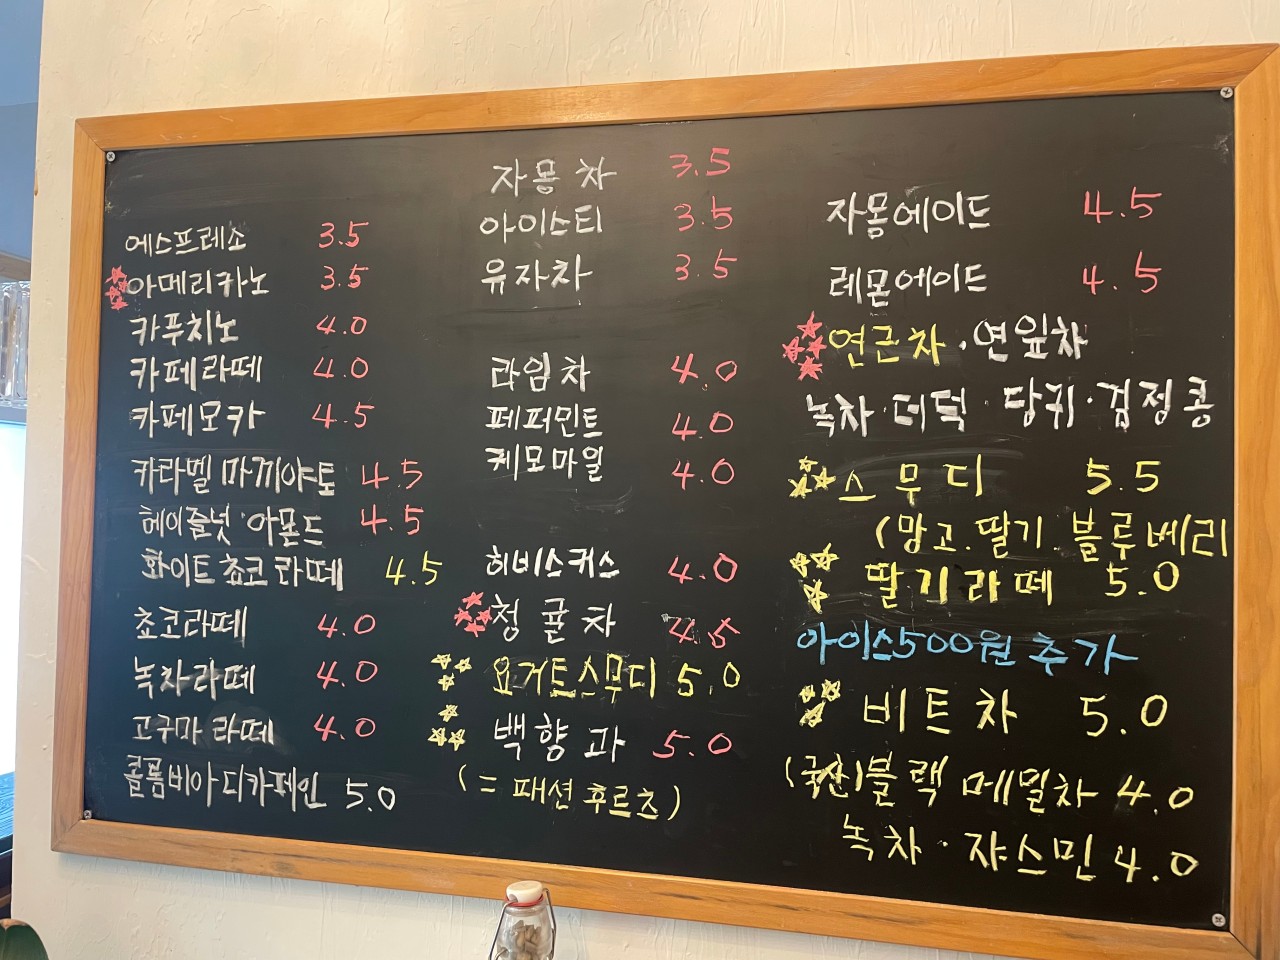 에스프레소 3.5
아메리카노 3.5
카푸치노 4.0
카페라떼 4.0
카페모카 4.5
카라멜 마끼야또 4.5
헤이즐넛·아몬드 4.5
화이트 쵸코 라떼 4.5
쵸코라떼 4.0
녹차라떼 4.0
고구마 라떼 4.0
콜롬비아 디카페인 5.0
자몽차 3.5
아이스티 3.5
유자차 3.5
라임차 4.0
페퍼민트 4.0
케모마일 4.0
히비스커스 4.0
청귤차 4.5
요거트스무디 5.0
백향과 5.0
(= 패션후르츠)
자몽에이드 4.5
레몬에이드 4.5
연근차·연잎차
녹차·더덕·당귀·검정콩
스무디 5.5
(망고.딸기.블루베리
딸기라떼 5.0
아이스500원 추가
비트차 5.0
(국산)블랙 메밀차 4.0
녹차·쟈스민 4.0